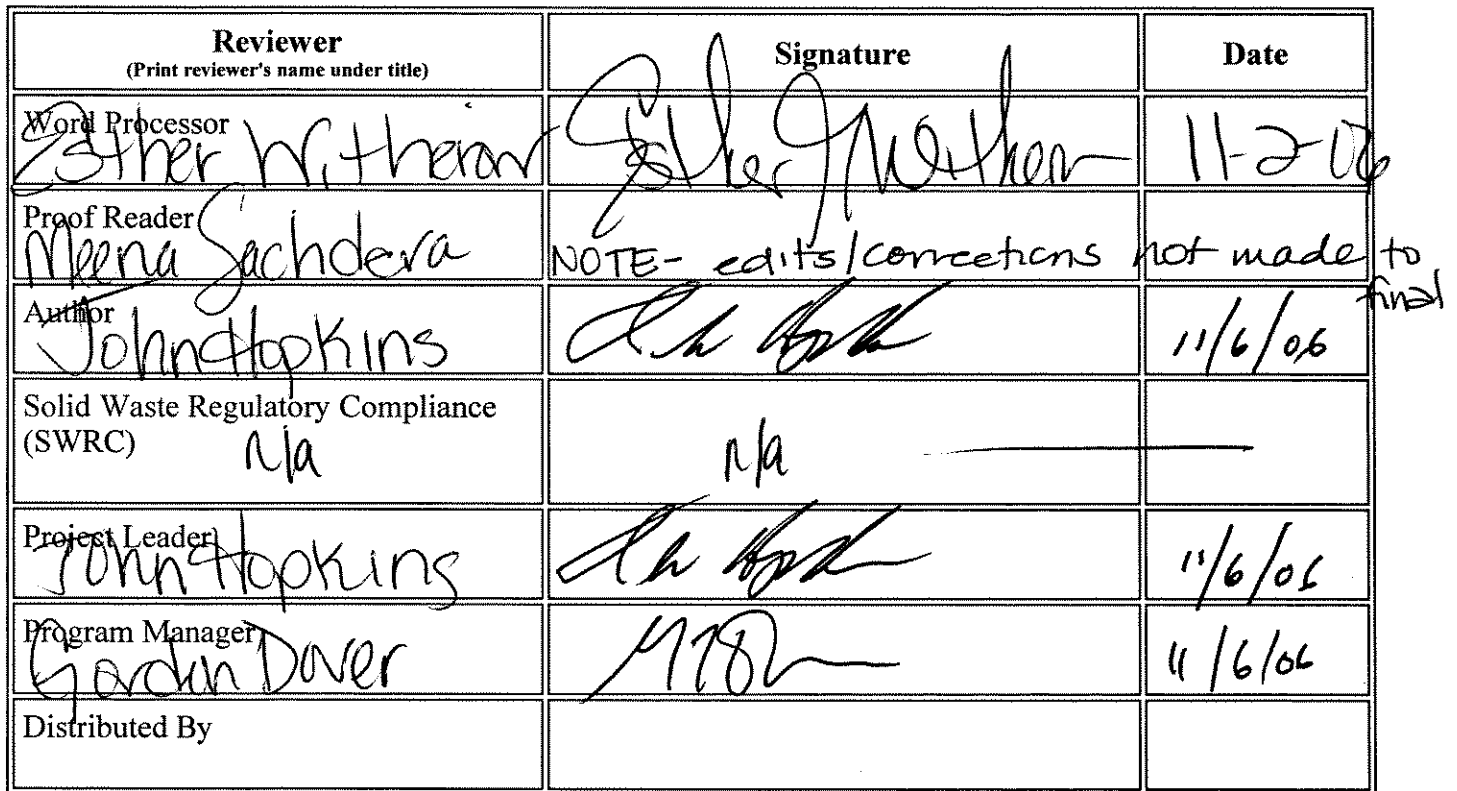 Reviewer Signature Date
(Print reviewer's name under title)
Word Processor
Esther Witherow 11-2-06
Proof Reader
Meena Sachdeva NOTE- edits/corrections not made to
final
Author
John Hopkins 11/6/06
Solid Waste Regulatory Compliance
(SWRC) n/a n/a
Project Leader
John Hopkins 11/6/06
Program Manager
Gordon Dover 11/6/06
Distributed By